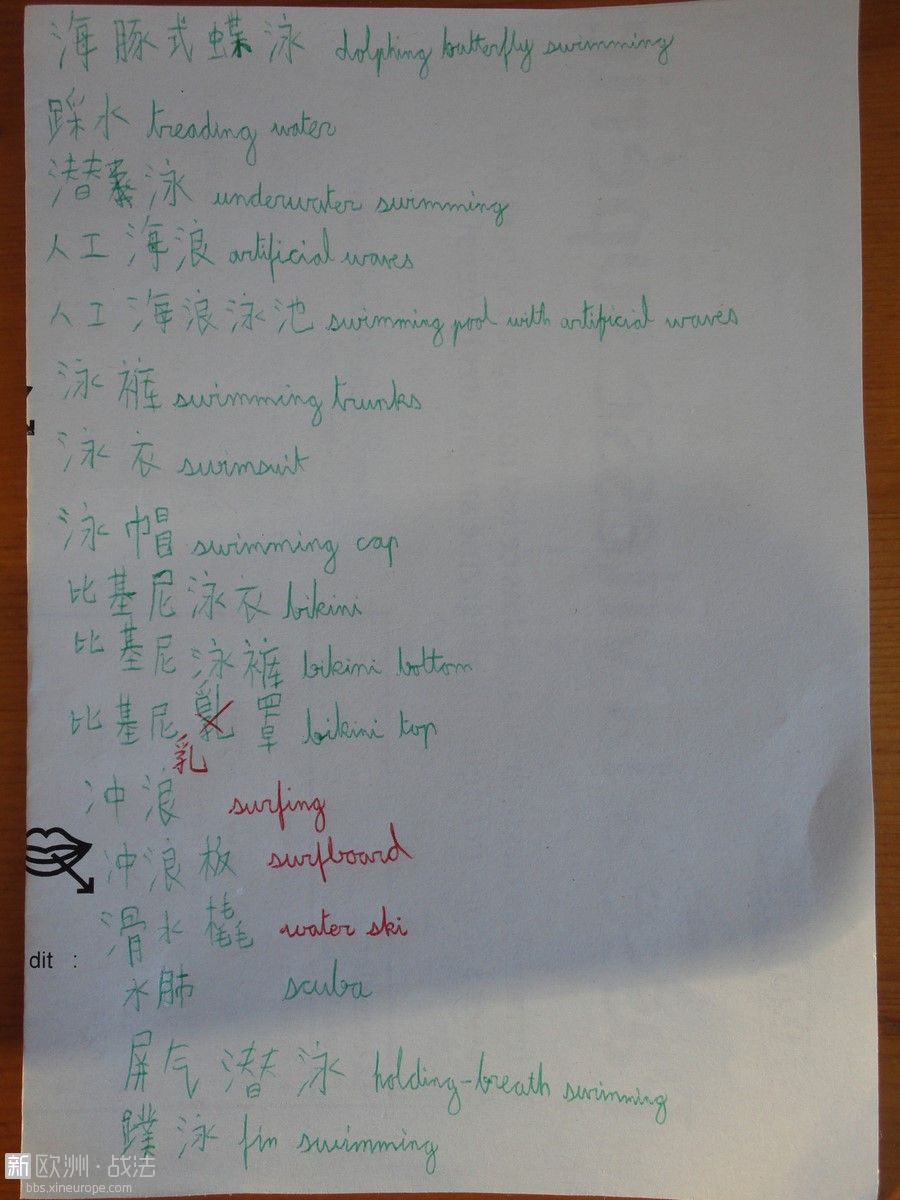 海豚式蝶泳 dolphing butterfly swimming
踩水 treading water
潜泳 underwater swimming
人工海浪 artificial waves
人工海浪泳池 swimming pool with artificial waves
泳裤 swimming trunks
泳衣 swimsuit
泳帽 swimming cap
比基尼泳衣 bikini
比基尼泳裤 bikini bottom
比基尼罩 bikini top
乳
冲浪 surfing
冲浪板 surfboard
滑水橇 water ski
dit :
水肺 scuba
屏气潜泳 holding-breath swimming
蹼泳 fin swimming
新欧洲·战法
bbs.xineurope.com